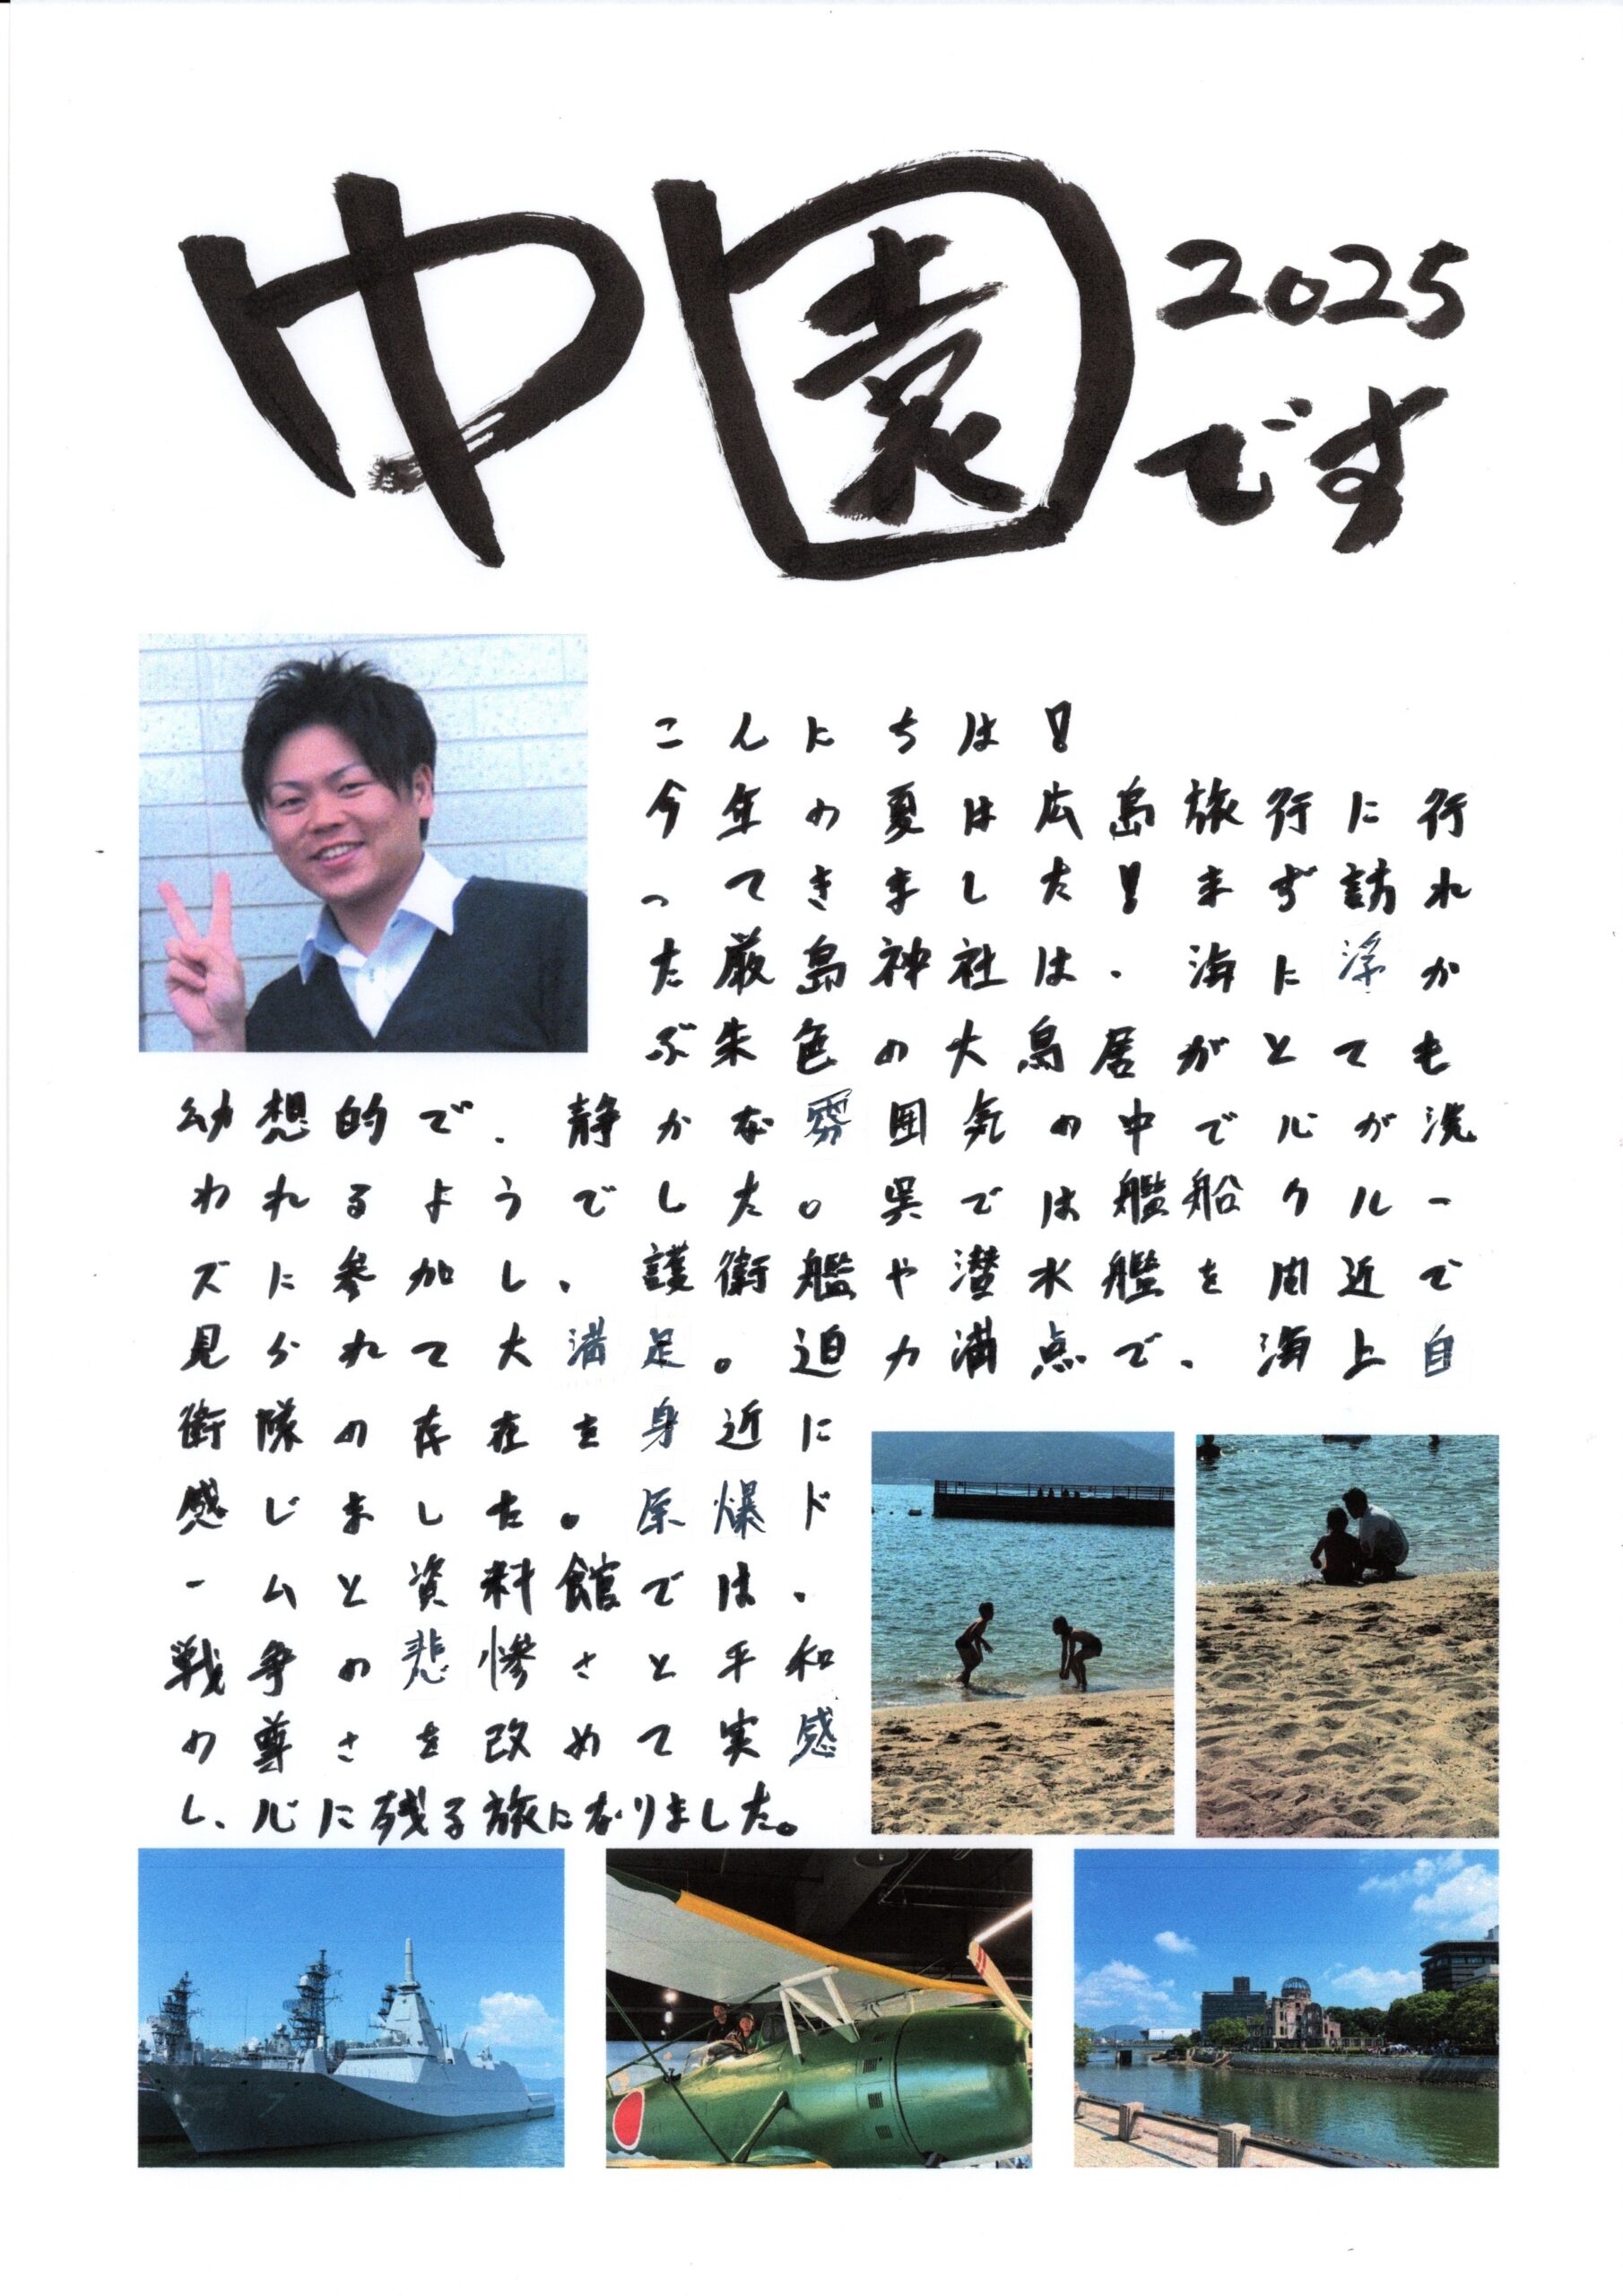 中園
2025
です
こんにちは!
今年の夏は広島旅行に行
ってきました!まず訪れ
た厳島神社は、海に浮か
ぶ朱色の大鳥居がとても
幼想的で、静かな雰囲気の中で心が洗
われるようでした。呉では艦船クルー
ズに参加し、護衛艦や潜水艦を間近で
見られて大満足。迫力満点で、海上自
衛隊の存在を身近に
感じました。原爆ド
ームと資料館では、
戦争の悲惨さと平和
の尊さを改めて実感
し、心に残る旅になりました。